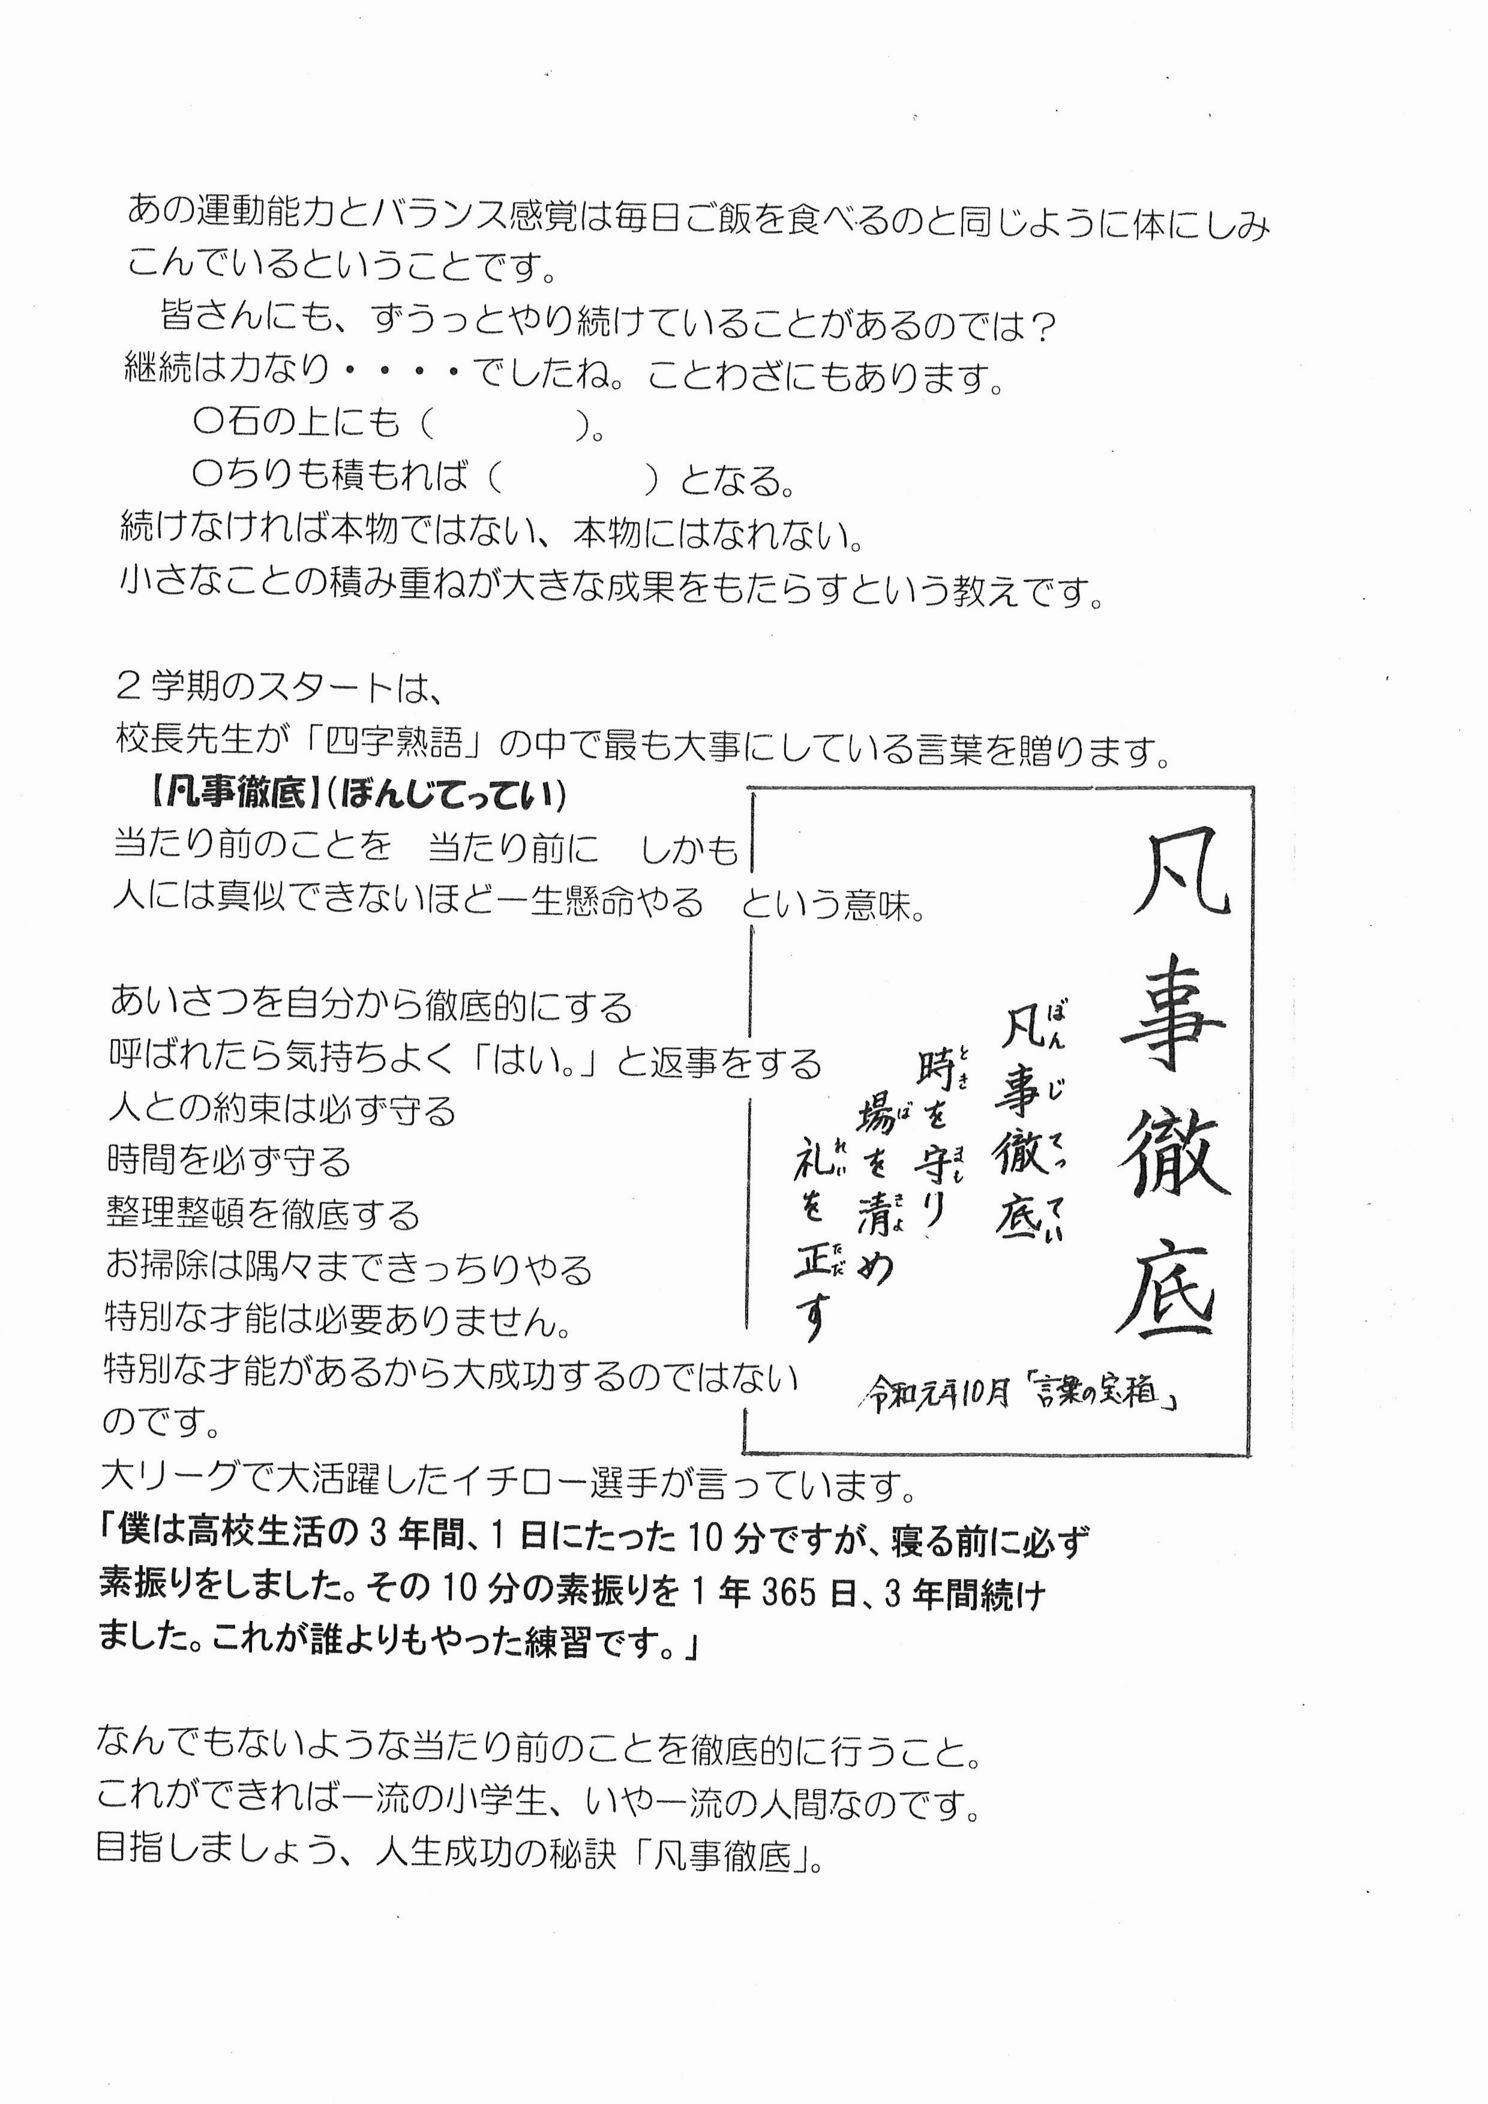 あの運動能力とバランス感覚は毎日ご飯を食べるのと同じように体にしみ
こんでいるということです。
皆さんにも、ずうっとやり続けていることがあるのでは？
継続は力なり・・・・でしたね。ことわざにもあります。
〇石の上にも（　　　　）。
〇ちりも積もれば（　　　　）となる。
続けなければ本物ではない、本物にはなれない。
小さなことの積み重ねが大きな成果をもたらすという教えです。
２学期のスタートは、
校長先生が「四字熟語」の中で最も大事にしている言葉を贈ります。
【凡事徹底】（ぼんじてってい）
当たり前のことを　当たり前に　しかも
人には真似できないほど一生懸命やる　という意味。
あいさつを自分から徹底的にする
呼ばれたら気持ちよく「はい。」と返事をする
人との約束は必ず守る
時間を必ず守る
整理整頓を徹底する
お掃除は隅々まできっちりやる
特別な才能は必要ありません。
特別な才能があるから大成功するのではない
のです。
凡事徹底
凡事徹底
ぼんじてってい
時を守り
とき まも
場を清め
ば きよ
礼を正す
れい ただ
令和元年10月「言葉の宝箱」
大リーグで大活躍したイチロー選手が言っています。
「僕は高校生活の３年間、１日にたった10分ですが、寝る前に必ず
素振りをしました。その10分の素振りを１年365日、３年間続け
ました。これが誰よりもやった練習です。」
なんでもないような当たり前のことを徹底的に行うこと。
これができれば一流の小学生、いや一流の人間なのです。
目指しましょう、人生成功の秘訣「凡事徹底」。